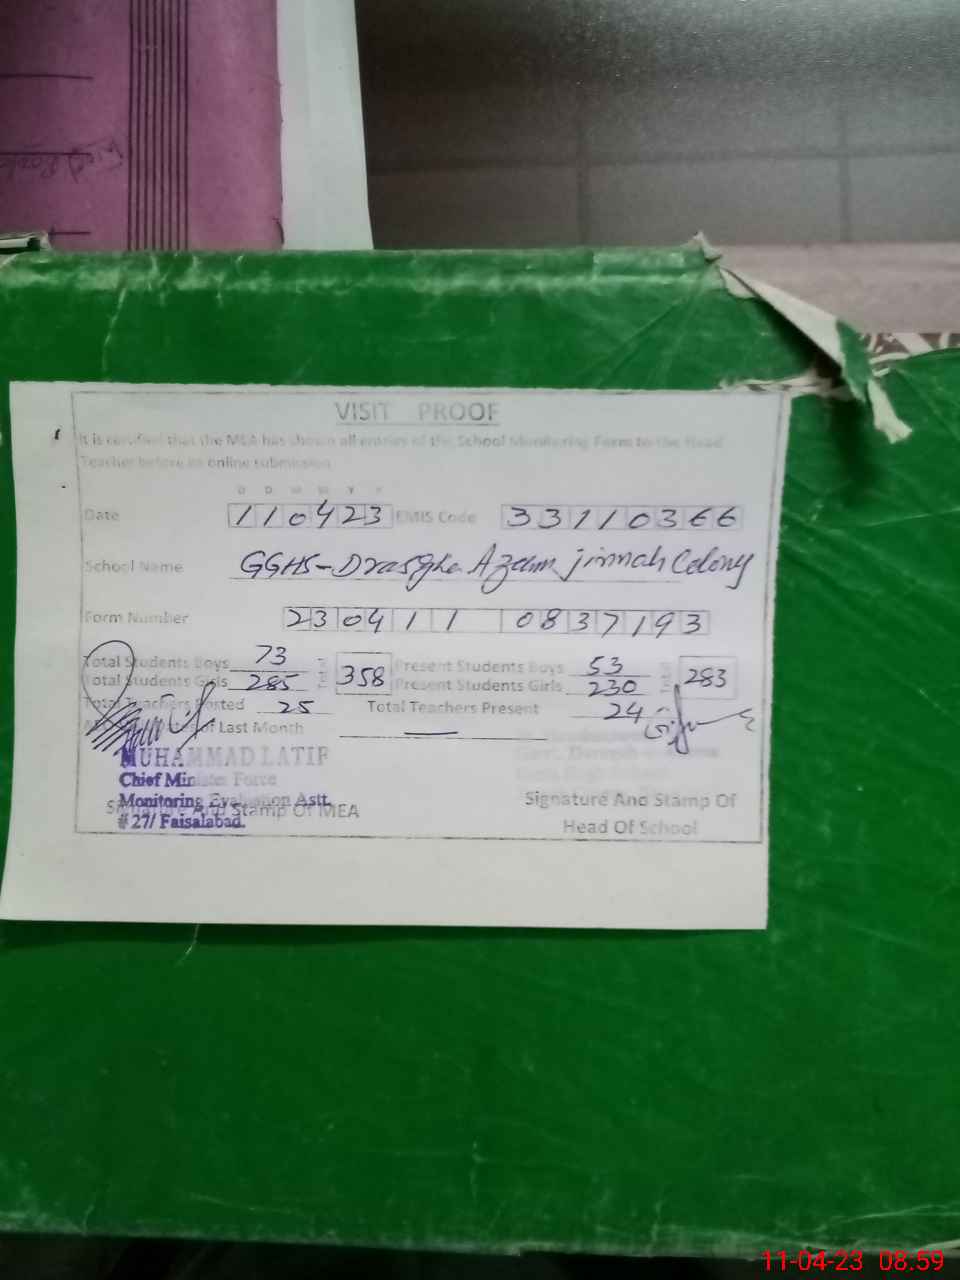 VISIT PROOF
It is certified that the MEA has shown all entries of the School Monitoring Form to the Head
Teacher before its online submission
D D M M Y Y
Date 110423 EMIS Code 33110366
School Name GGHS- Azam jinnah Colony
Form Number 230411 0837193
Total Students Boys 73 358 Present Students Boys 53 283
Total Students Girls 285 Present Students Girls 230
Total Teachers Posted 25 Total Teachers Present 24
of Last Month —
MUHAMMAD LATIF
Chief Minister Force
Monitoring Evaluation Astt.
# 27/ Faisalabad.
Signature And Stamp Of MEA
Signature And Stamp Of
Head Of School
11-04-23 08.59